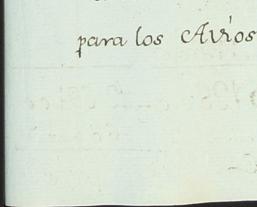 para los Avios